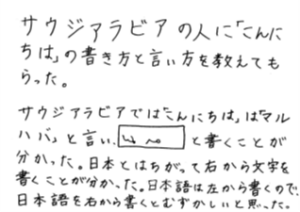 サウジアラビアの人に「こんに
ちは」の書き方と言い方を教えても
らった。
サウジアラビアでは「こんにちは」は「マル
ハバ」と言い、と書くことが
分かった。日本とはちがって右から文字を
書くことが分かった。日本語は左から書くので、
日本語を右から書くとむずかしいと思った。